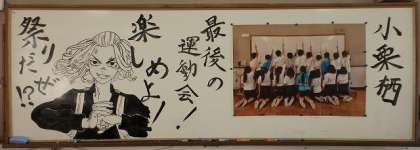 小栗栖
最後の
運動会！
楽しめよ！
祭りだぜ!?